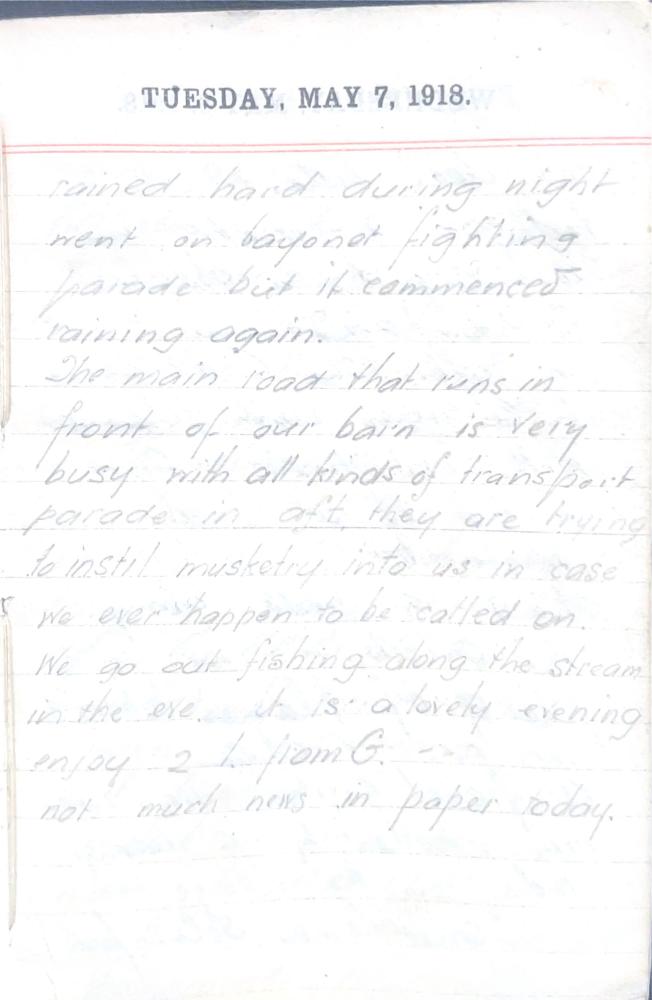 TUESDAY, MAY 7, 1918.
rained hard during night
went on bayonet fighting
parade but it commenced
raining again.
The main road that runs in
front of our barn is very
busy with all kinds of transport
parade in aft. they are trying
to instil musketry into us in case
we ever happen to be called on.
We go out fishing along the stream
in the eve. it is a lovely evening
enjoy 2 l. from G. ---
not much news in paper today.